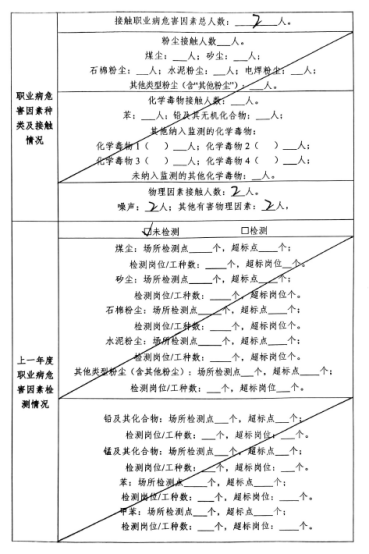 接触职业病危害因素总人数：2人。
职业病危害因素种类及接触情况
粉尘接触人数___人。
煤尘：___人；矽尘：___人；
石棉粉尘：___人；水泥粉尘：___人；电焊粉尘：___人；
其他类型粉尘（含"其他粉尘"）：___人。
化学毒物接触人数：___人。
苯：___人；铅及其无机化合物：___人；
其他纳入监测的化学毒物：
化学毒物1（ ）___人；化学毒物2（ ）___人；
化学毒物3（ ）___人；化学毒物4（ ）___人；
未纳入监测的其他化学毒物：___人。
物理因素接触人数：2人。
噪声：2人；其他有害物理因素：2人。
上一年度职业病危害因素检测情况
☑未检测 □检测
煤尘：场所检测点____个，超标点___个；
检测岗位/工种数：____个，超标岗位__个。
矽尘：场所检测点____个，超标点___个；
检测岗位/工种数：____个，超标岗位个。
石棉粉尘：场所检测点____个，超标点___个；
检测岗位/工种数：____个，超标岗位个。
水泥粉尘：场所检测点____个，超标点___个；
检测岗位/工种数：____个，超标岗位个。
其他类型粉尘（含其他粉尘）：场所检测点___个，超标点____个；
检测岗位/工种数：___个，超标岗位___个。
铅及其化合物：场所检测点___个，超标点___个；
检测岗位/工种数：___个，超标岗位：___个。
锰及其化合物：场所检测点___个，超标点___个；
检测岗位/工种数：___个，超标岗位：___个。
苯：场所检测点____个，超标点____个；
检测岗位/工种数：___个，超标岗位：____个。
甲苯：场所检测点____个，超标点___个；
检测岗位/工种数：___个，超标岗位：____个。